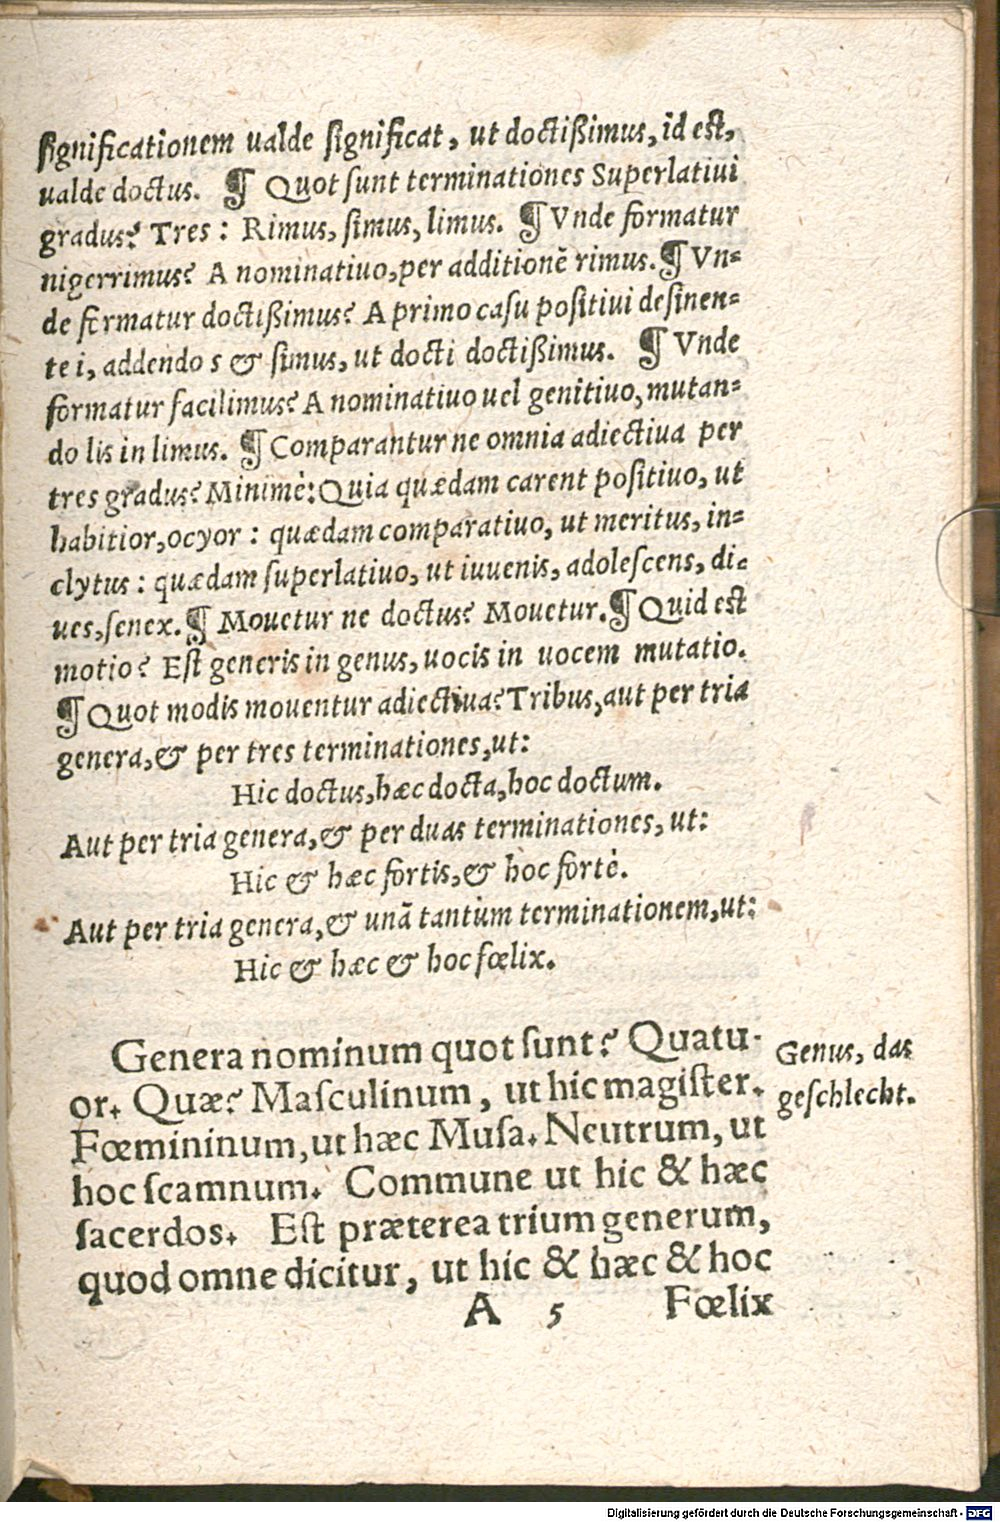 ſignificationem ualde ſignificat, ut doctißimus, id eſt,
ualde doctus. ¶ Quot ſunt terminationes Superlatiui
gradus? Tres: Rimus, ſimus, limus. ¶ Vnde formatur
nigerrimus? A nominatiuo, per additionẽ rimus. ¶ Vn=
de formatur doctißimus? A primo caſu poſitiui deſinen=
te i, addendo s & ſimus, ut docti doctißimus. ¶ Vnde
formatur facilimus? A nominatiuo uel genitiuo, mutan=
do lis in limus. ¶ Comparantur ne omnia adiectiua per
tres gradus? Minimè: Quia quædam carent poſitiuo, ut
habitior, ocyor: quædam comparatiuo, ut meritus, in=
clytus: quædam ſuperlatiuo, ut iuuenis, adoleſcens, di=
ues, ſenex. ¶ Mouetur ne doctus? Mouetur. ¶ Quid eſt
motio? Eſt generis in genus, uocis in uocem mutatio.
¶ Quot modis mouentur adiectiua? Tribus, aut per tria
genera, & per tres terminationes, ut:
Hic doctus, hæc docta, hoc doctum.
Aut per tria genera, & per duas terminationes, ut:
Hic & hæc fortis, & hoc fortè.
Aut per tria genera, & unã tantùm terminationem, ut:
Hic & hæc & hoc fœlix.
Genera nominum quot ſunt? Quatu-
or. Quæ? Maſculinum, ut hic magiſter.
Fœmininum, ut hæc Muſa. Neutrum, ut
hoc ſcamnum. Commune ut hic & hæc
ſacerdos. Eſt præterea trium generum,
quod omne dicitur, ut hic & hæc & hoc
A 5 Fœlix
Genus, das
geſchlecht.
Digitalisierung gefördert durch die Deutsche Forschungsgemeinschaft - DFG